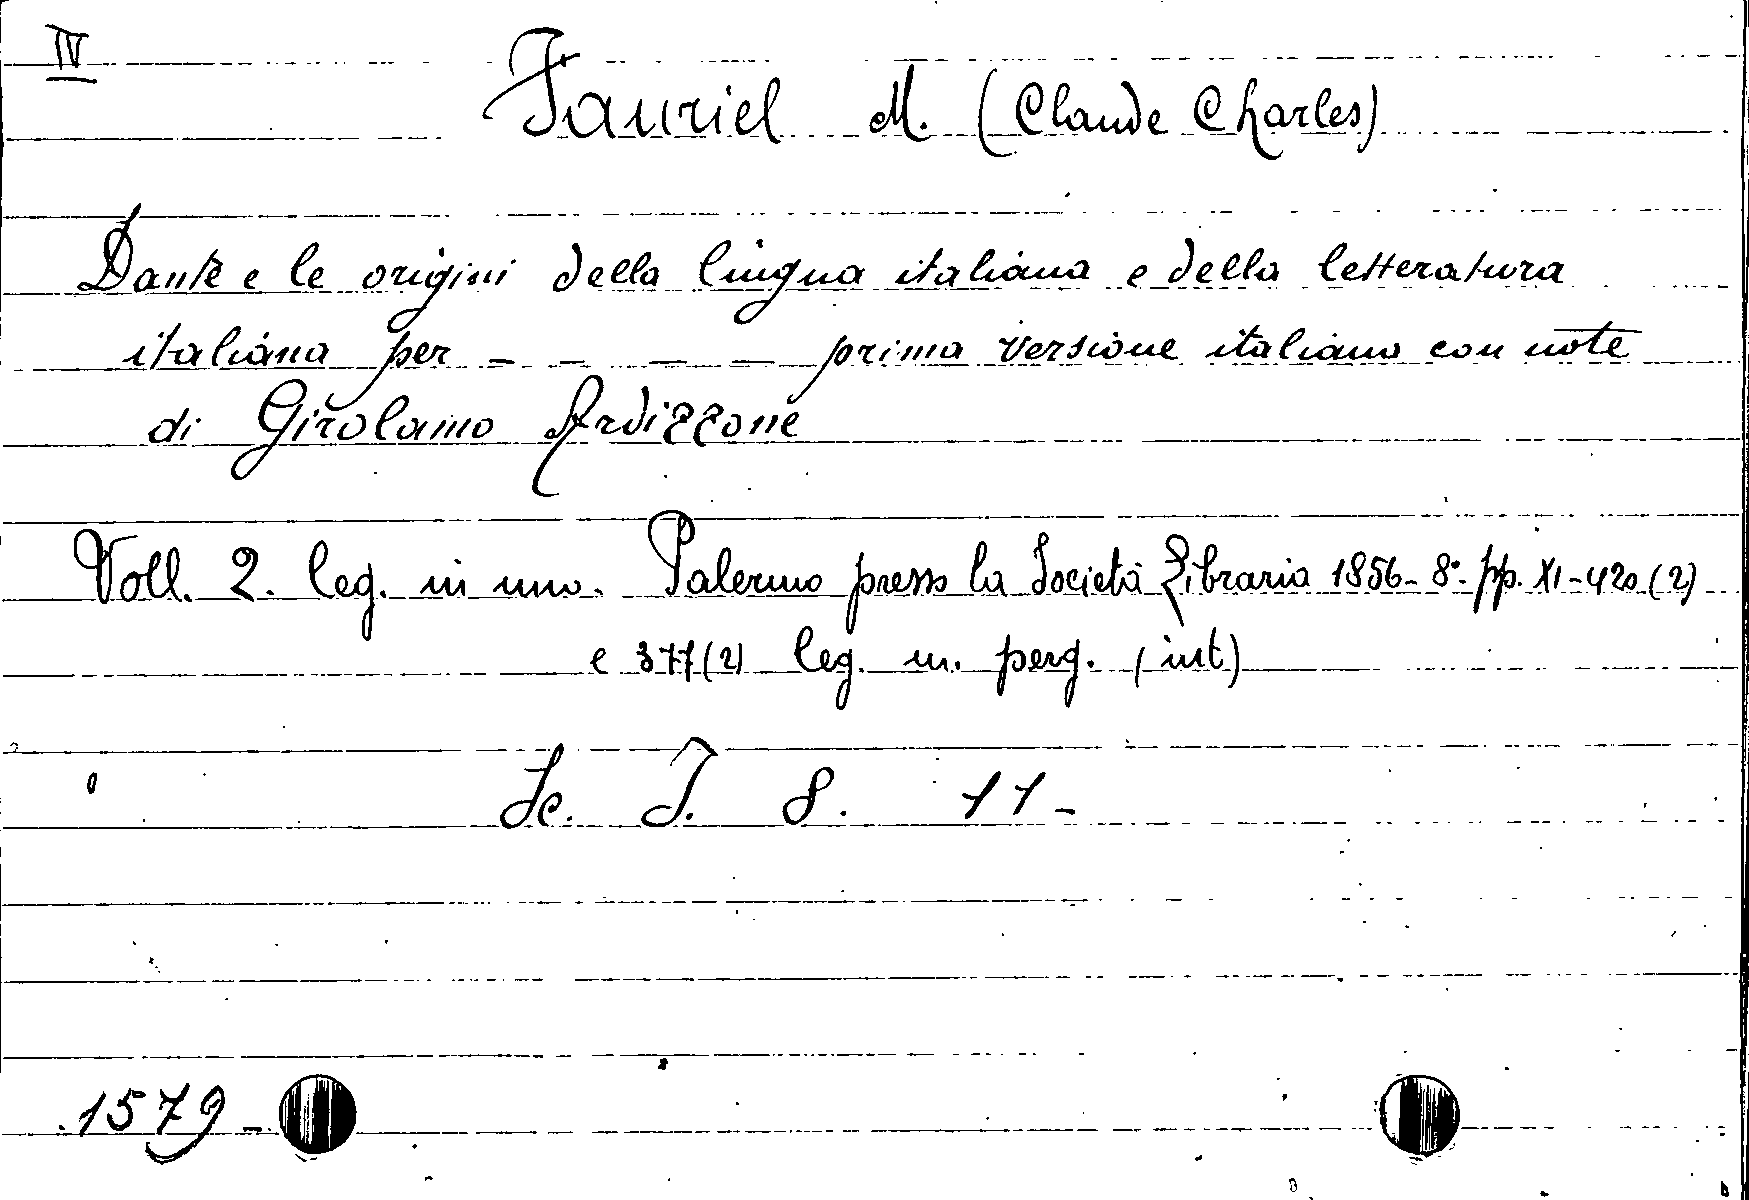 IV
Fauriel M. (Claude Charles)
Dante e le origini della lingua italiana e della letteratura
italiana per - - - - prima versione italiana con note
di Girolamo Ardizzone
Voll. 2. leg. in uno. Palermo presso la Società Libraria 1856 - 8°. pp. XI-420 (2)
e 377 (2) leg. m. perg. (int)
Sc. I. 8. 11 -
1579 -